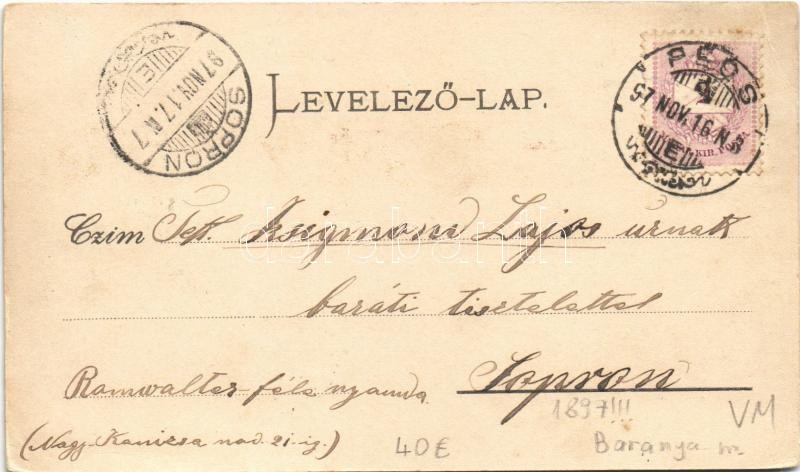 SOPRON
97 NOV. 17. N 7
E
LEVELEZŐ-LAP.
PÉCS
97 NOV. 16. N
E
KIR.
Czim Tek. Zsigmond Lajos urnak
baráti tisztelettel
Romwalter-féle nyomda Sopron
(Nagy Kanizsa nov. 21-ig.)
1897!!!
VM
40€
Baranya m.
darabanth